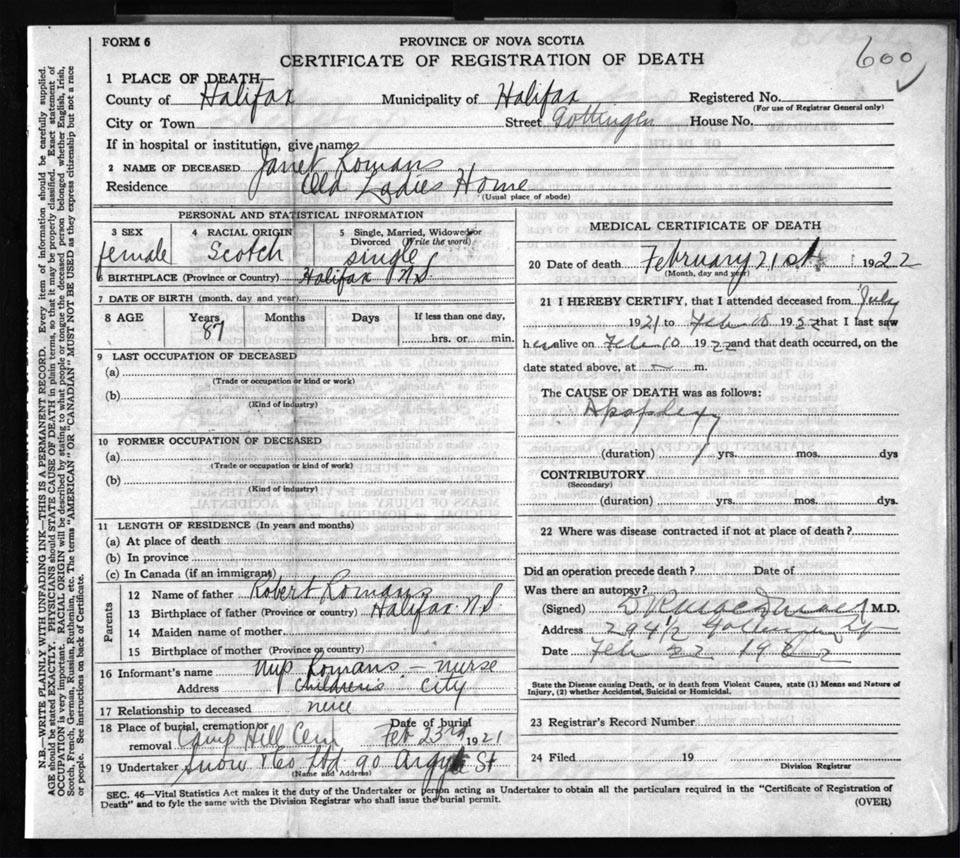 600
FORM 6
PROVINCE OF NOVA SCOTIA
CERTIFICATE OF REGISTRATION OF DEATH
1 PLACE OF DEATH—
County of Halifax Municipality of Halifax Registered No.
(For use of Registrar General only)
City or Town Street Gottingen House No.
If in hospital or institution, give name
2 NAME OF DECEASED Janet Romans
Residence Old Ladies Home
(Usual place of abode)
PERSONAL AND STATISTICAL INFORMATION
3 SEX 4 RACIAL ORIGIN 5 Single, Married, Widowed or
Divorced (Write the word)
female Scotch single
6 BIRTHPLACE (Province or Country) Halifax N S
7 DATE OF BIRTH (month, day and year)
8 AGE Years Months Days If less than one day,
87 hrs. or min.
9 LAST OCCUPATION OF DECEASED
(a)
(Trade or occupation or kind or work)
(b)
(Kind of industry)
10 FORMER OCCUPATION OF DECEASED
(a)
(Trade or occupation or kind or work)
(b)
(Kind of industry)
11 LENGTH OF RESIDENCE (In years and months)
(a) At place of death
(b) In province
(c) In Canada (if an immigrant)
Parents
12 Name of father Robert Romans
13 Birthplace of father (Province or country) Halifax N.S.
14 Maiden name of mother
15 Birthplace of mother (Province or country)
16 Informant's name Romans — nurse
Address Children's City
17 Relationship to deceased niece
18 Place of burial, cremation or Date of burial
removal Camp Hill Cem Feb 23rd 1921
19 Undertaker Snow & Co Ltd 90 Argyle St
(Name and Address)
MEDICAL CERTIFICATE OF DEATH
20 Date of death February 21st 1922
(Month, day and year)
21 I HEREBY CERTIFY, that I attended deceased from July
1921 to Feb 10 1922 that I last saw
her alive on Feb 10 1922 and that death occurred, on the
date stated above, at m.
The CAUSE OF DEATH was as follows:
Apoplexy
(duration) yrs. mos. dys
CONTRIBUTORY
(Secondary)
(duration) yrs. mos. dys.
22 Where was disease contracted if not at place of death?
Did an operation precede death? Date of
Was there an autopsy?
(Signed) M.D.
Address 294 1/2 Gottingen St
Date Feb 22 1922
State the Disease causing Death, or in death from Violent Causes, state (1) Means and Nature of
Injury, (2) whether Accidental, Suicidal or Homicidal.
23 Registrar's Record Number
24 Filed 19
Division Registrar
SEC. 46—Vital Statistics Act makes it the duty of the Undertaker or person acting as Undertaker to obtain all the particulars required in the "Certificate of Registration of
Death" and to fyle the same with the Division Registrar who shall issue the burial permit.
(OVER)
N.B.—WRITE PLAINLY WITH UNFADING INK.—THIS IS A PERMANENT RECORD. Every item of information should be carefully supplied.
AGE should be stated EXACTLY. PHYSICIANS should STATE CAUSE OF DEATH in plain terms, so that it may be properly classified. Exact statement of
OCCUPATION is very important. RACIAL ORIGIN will be described by stating to what people or tongue the deceased person belonged whether English, Irish,
Scotch, French, German, Russian, Ruthenian, etc. The terms "AMERICAN" OR "CANADIAN" MUST NOT BE USED as they express citizenship but not a race
or people. See instructions on back of Certificate.